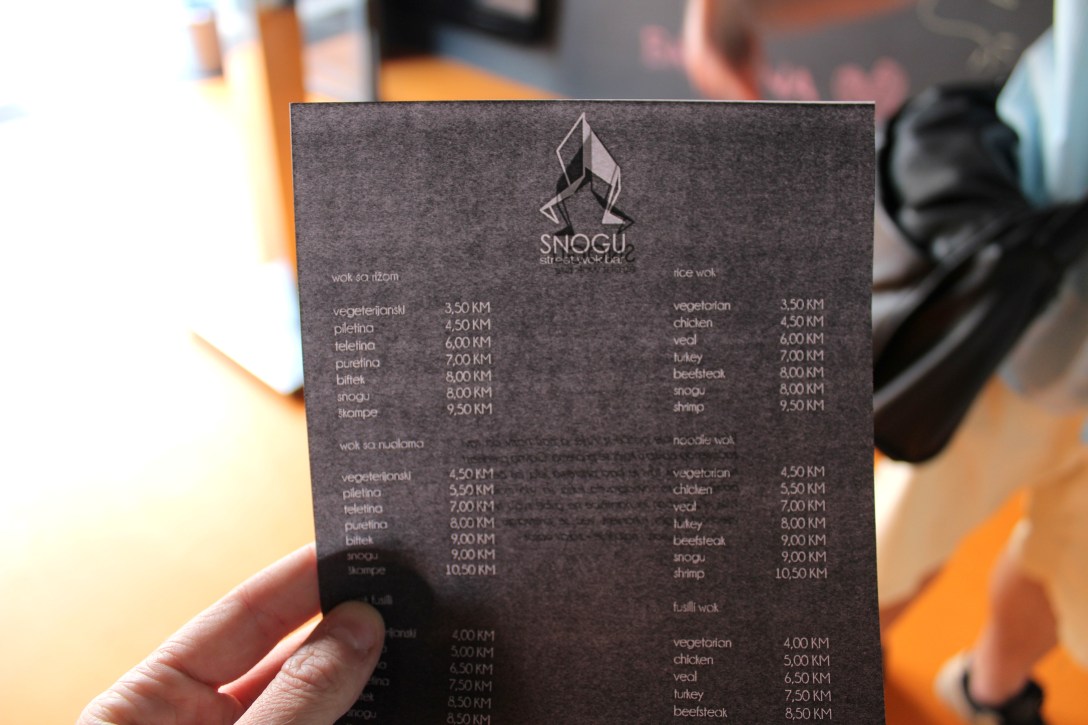 SNOGU
street wok bar
wok sa rižom
vegeterijanski 3,50 KM
piletina 4,50 KM
teletina 6,00 KM
puretina 7,00 KM
biftek 8,00 KM
snogu 8,00 KM
škampe 9,50 KM
wok sa nudlama
vegeterijanski 4,50 KM
piletina 5,50 KM
teletina 7,00 KM
puretina 8,00 KM
biftek 9,00 KM
snogu 9,00 KM
škampe 10,50 KM
fusilli
4,00 KM
5,00 KM
6,50 KM
7,50 KM
8,50 KM
snogu 8,50 KM
rice wok
vegetarian 3,50 KM
chicken 4,50 KM
veal 6,00 KM
turkey 7,00 KM
beefsteak 8,00 KM
snogu 8,00 KM
shrimp 9,50 KM
noodle wok
vegetarian 4,50 KM
chicken 5,50 KM
veal 7,00 KM
turkey 8,00 KM
beefsteak 9,00 KM
snogu 9,00 KM
shrimp 10,50 KM
fusilli wok
vegetarian 4,00 KM
chicken 5,00 KM
veal 6,50 KM
turkey 7,50 KM
beefsteak 8,50 KM